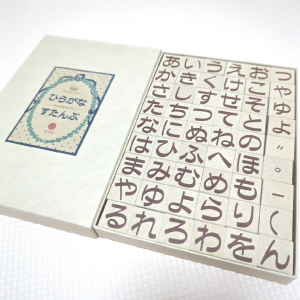 ひらがな
すたんぷ
あいうえおつ
かきくけこや
さしすせそゆ
たちつてとよ
なにぬねの〃
はひふへほ。
まみむめもー
やゆよらり(
るれろわをん